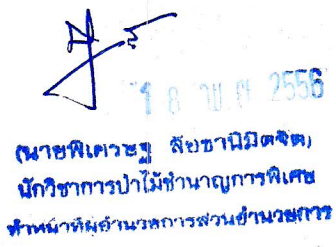 18 พ.ค. 2556
(นายพิเศรษฐ ลัยชานิมิตจิต)
นักวิชาการป่าไม้ชำนาญการพิเศษ
ทำหน้าที่ผู้อำนวยการส่วนอำนวยการ